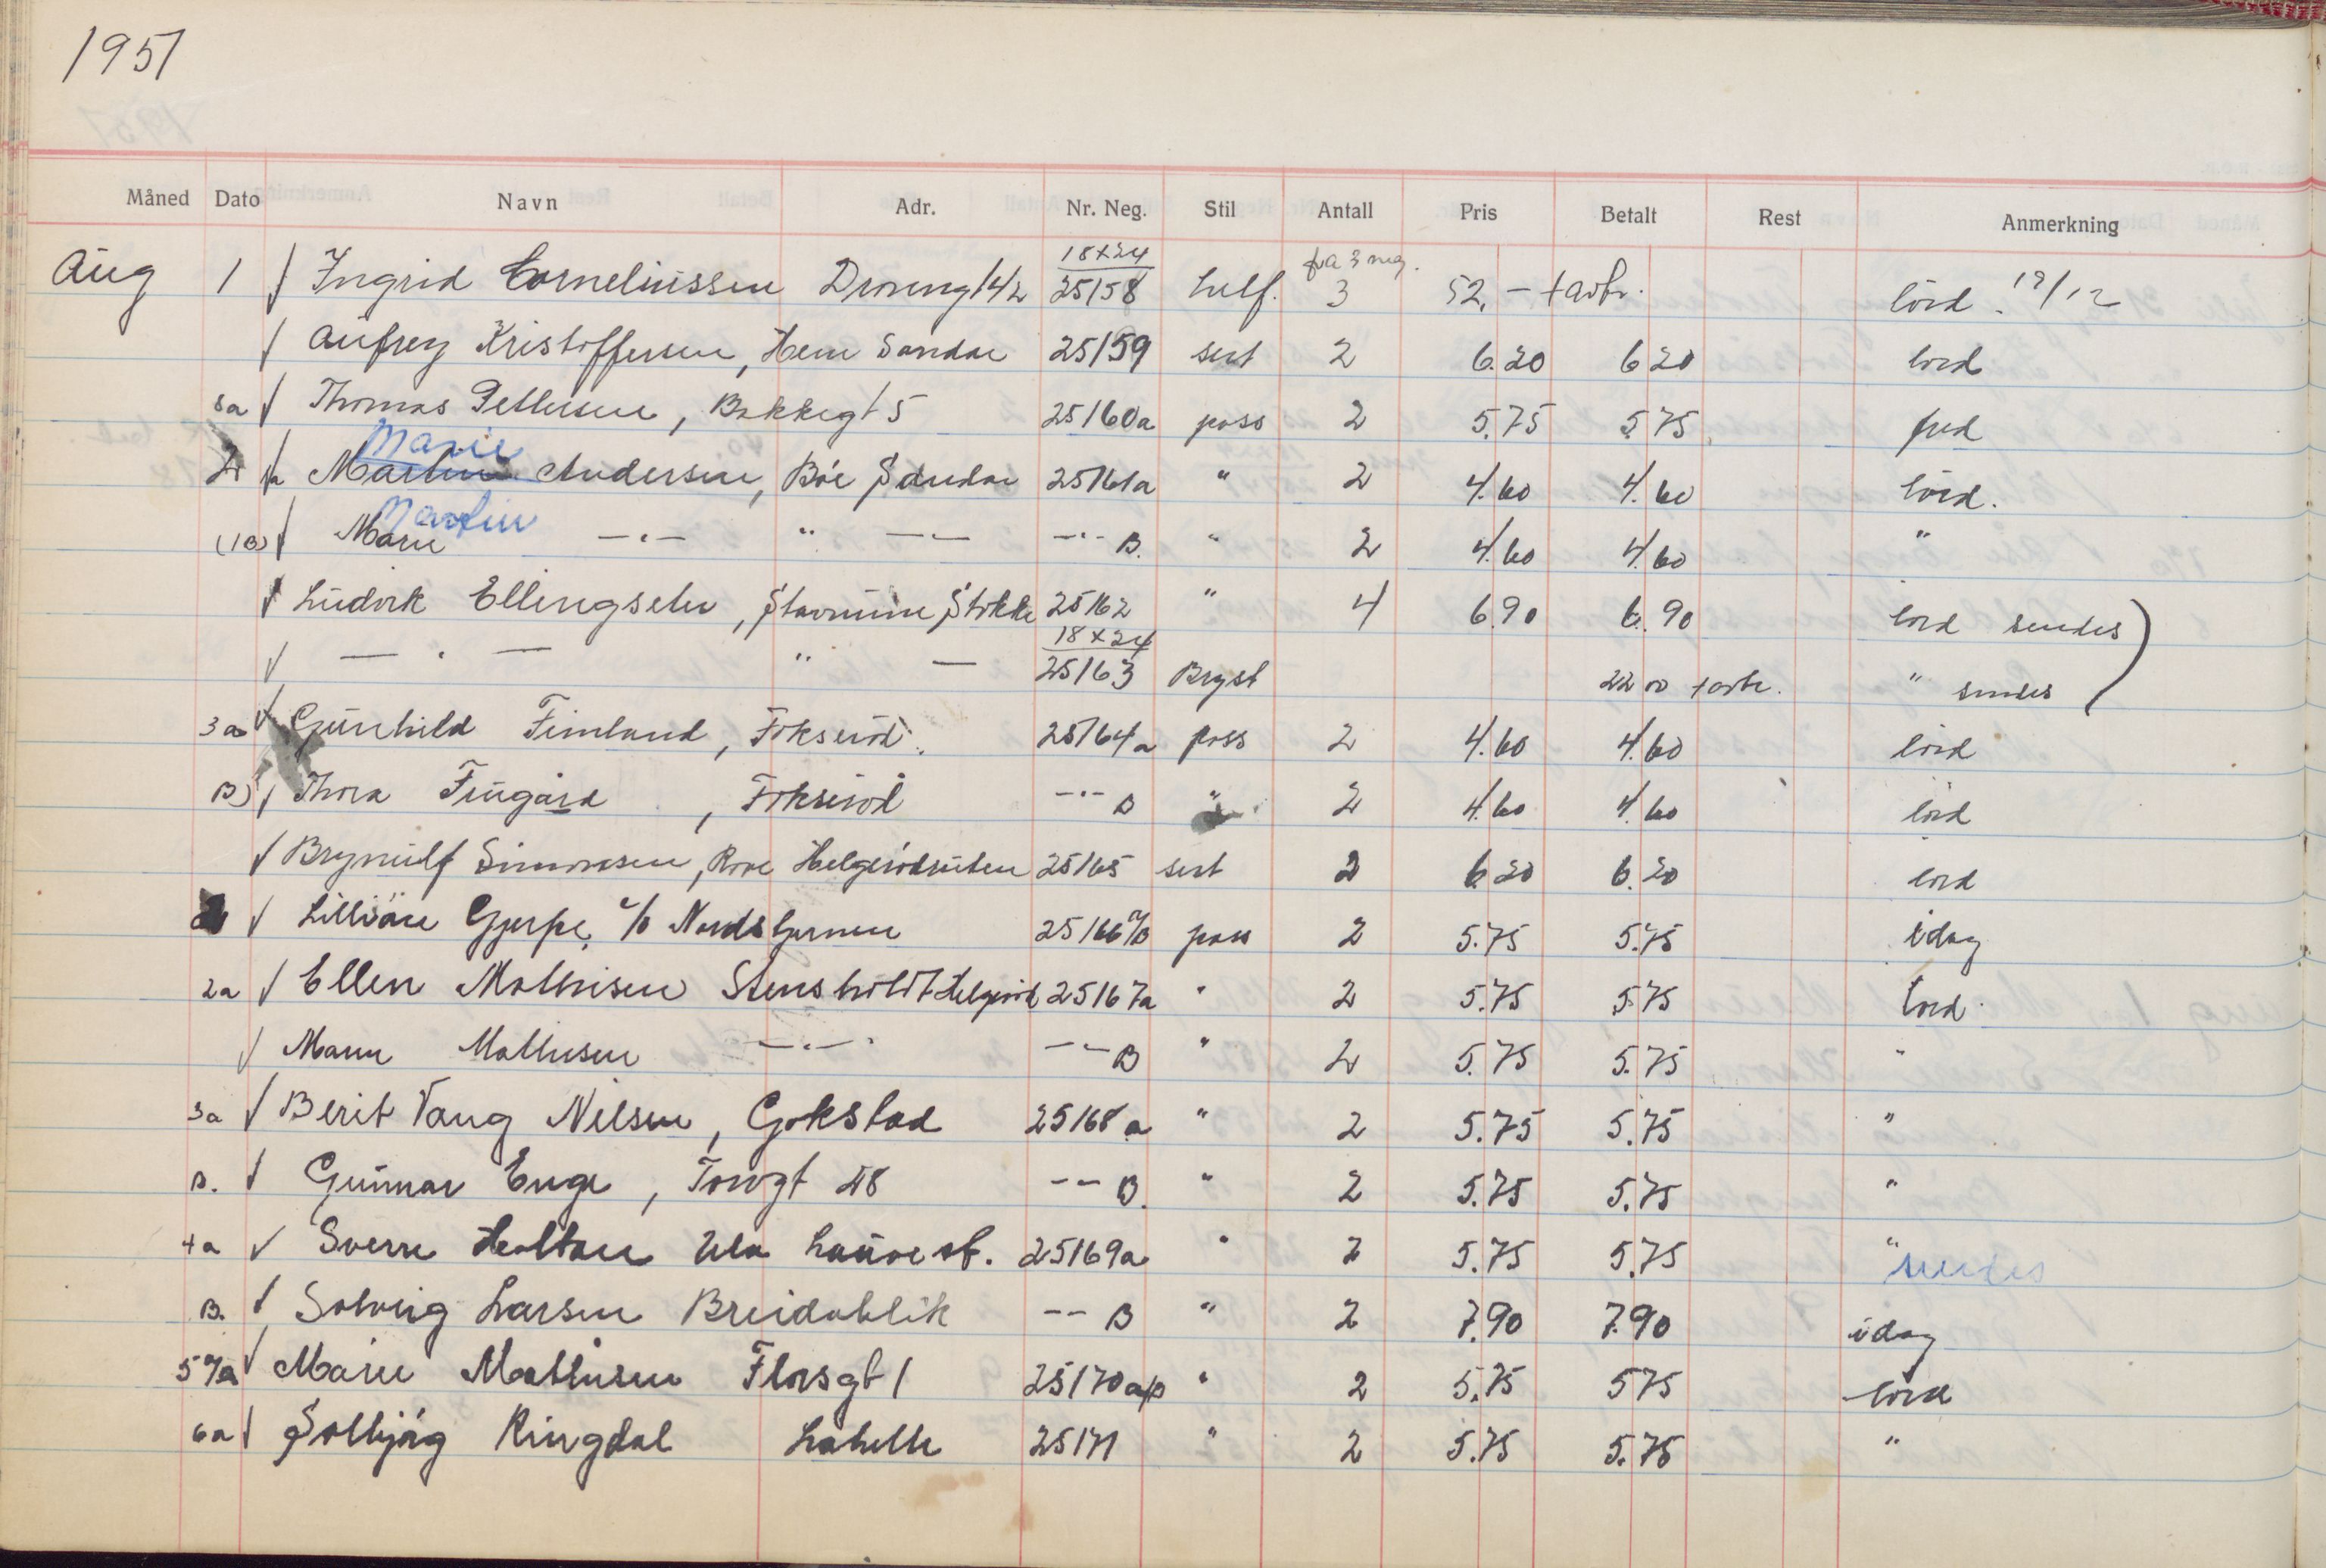 1951
Måned Dato Navn Adr. Nr. Neg. Stil Antall Pris Betalt Rest Anmerkning
18x24 fra 3 neg.
Aug 1 √ Ingrid Corneliussen Dronng 42 25158 3 52.- + avb. lörd. 12/12
√ Aufrey Kristoffersen, Hem Sandar 25159 2 6.20 6 20 lörd
√ Thomas Pettersen, Bakkegt 5 25160a pass 2 5.75 5.75 fred
Marie
2 √a Martin Andersen, Böe Sandar 25161a " 2 4.60 4.60 lörd.
Martin
(1B) √ Marie —"— " —— —"— B. " 2 4.60 4.60 "
√ Ludvik Ellingsen, Stokke 25162 " 4 6.90 6.90 lörd sendes
18x24
√ —"— " — 25163 Bryst 22 00 + avb. " sendes
3a √ Gunhild Fimland, Fokseröd. 25164a pass 2 4.60 4.60 lörd
B) √ Thora Fingård, Fokseröd —"— B " 2 4.60 4.60 lörd
√ Brynulf Simonsen, Rove Helgerödruten 25165 2 6.20 6.20 lörd
√ Gjerpe, c/o Nordstjernen 25166 a/B pass 2 5.75 5.75 idag
2a √ Ellen Mathisen Stensholt Helgeröd 25167a " 2 5.75 5.75 lörd.
√ Marie Mathisen —"— —"— B " 2 5.75 5.75 "
3a √ Berit Vang Nilsen, Gokstad 25168a " 2 5.75 5.75 "
B. √ Gunnar Enge, Torvgt 48 —"— B. " 2 5.75 5.75 "
4a √ Sverre Holtan Ula Lauve st. 25169a " 2 5.75 5.75 " sendes
B. √ Solveig Larsen Breidablik —"— B " 2 7.90 7.90 idag
5 √ Marie Mathisen Florsgt 1 25170a/B " 2 5.75 5 75 lörd
6a √ Solbjörg Ringdal Lahelle 25171 " 2 5.75 5.75 "